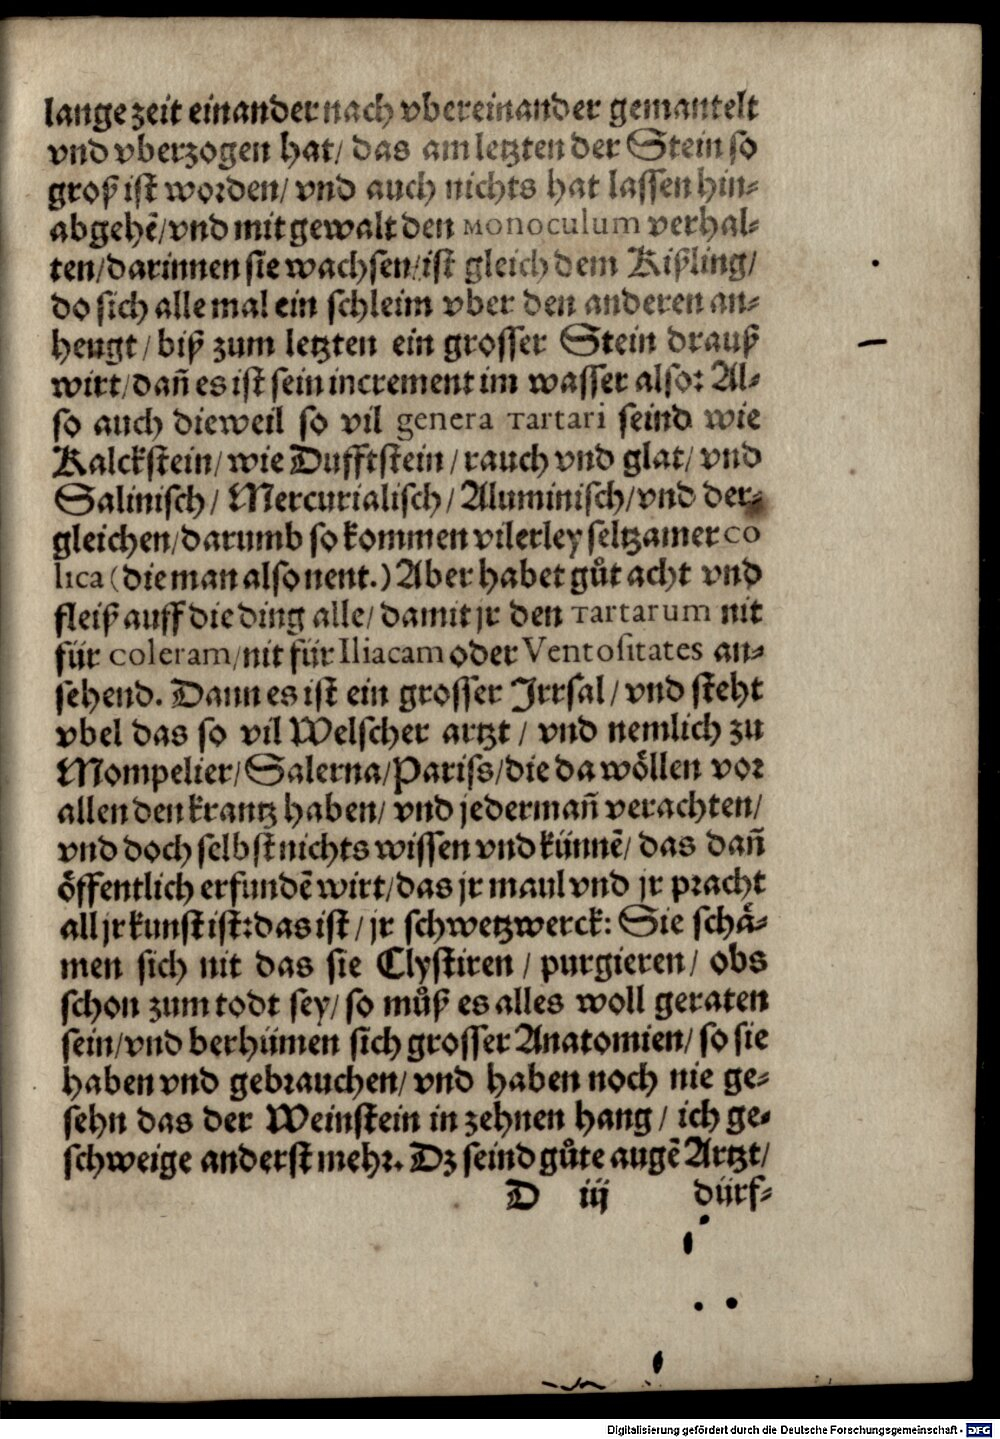 lange zeit einander nach vbereinander gemantelt
vnd vberzogen hat/ das am letzten der Stein so
groß ist worden/ vnd auch nichts hat lassen hin⸗
abgehē/vnd mit gewalt den Monoculum verhal⸗
ten/darinnen sie wachsen/ist gleich dem Kißling/
do sich alle mal ein schleim vber den anderen an⸗
hengt/ biß zum letzten ein grosser Stein drauß
wirt/dañ es ist sein increment im wasser also: Al⸗
so auch dieweil so vil genera Tartari seind wie
Kalckstein/wie Dufftstein/rauch vnd glat/ vnd
Salinisch/ Mercurialisch/Aluminisch/vnd der⸗
gleichen/darumb so kommen vilerley seltzamer co
lica (die man also nent.) Aber habet gůt acht vnd
fleiß auff die ding alle/ damit jr den Tartarum nit
für coleram/nit für Iliacam oder Ventositates an⸗
sehend. Dann es ist ein grosser Jrrsal/vnd steht
vbel das so vil Welscher artzt/ vnd nemlich zu
Mompelier/Salerna/Pariss/die da wöllen vor
allen den krantz haben/ vnd jedermañ verachten/
vnd doch selbst nichts wissen vnd künnē/das dañ
öffentlich erfundē wirt/das jr maul vnd jr pracht
all jr kunst ist:das ist/jr schwetzwerck: Sie schä⸗
men sich nit das sie Clystiren/ purgieren/ obs
schon zum todt sey/so můß es alles woll geraten
sein/vnd berhümen sich grosser Anatomien/so sie
haben vnd gebrauchen/ vnd haben noch nie ge⸗
sehn das der Weinstein in zehnen hang/ ich ge⸗
schweige anderst mehr. Dz seind gůte augē Artzt/
D iij dürf⸗
Digitalisierung gefördert durch die Deutsche Forschungsgemeinschaft - DFG